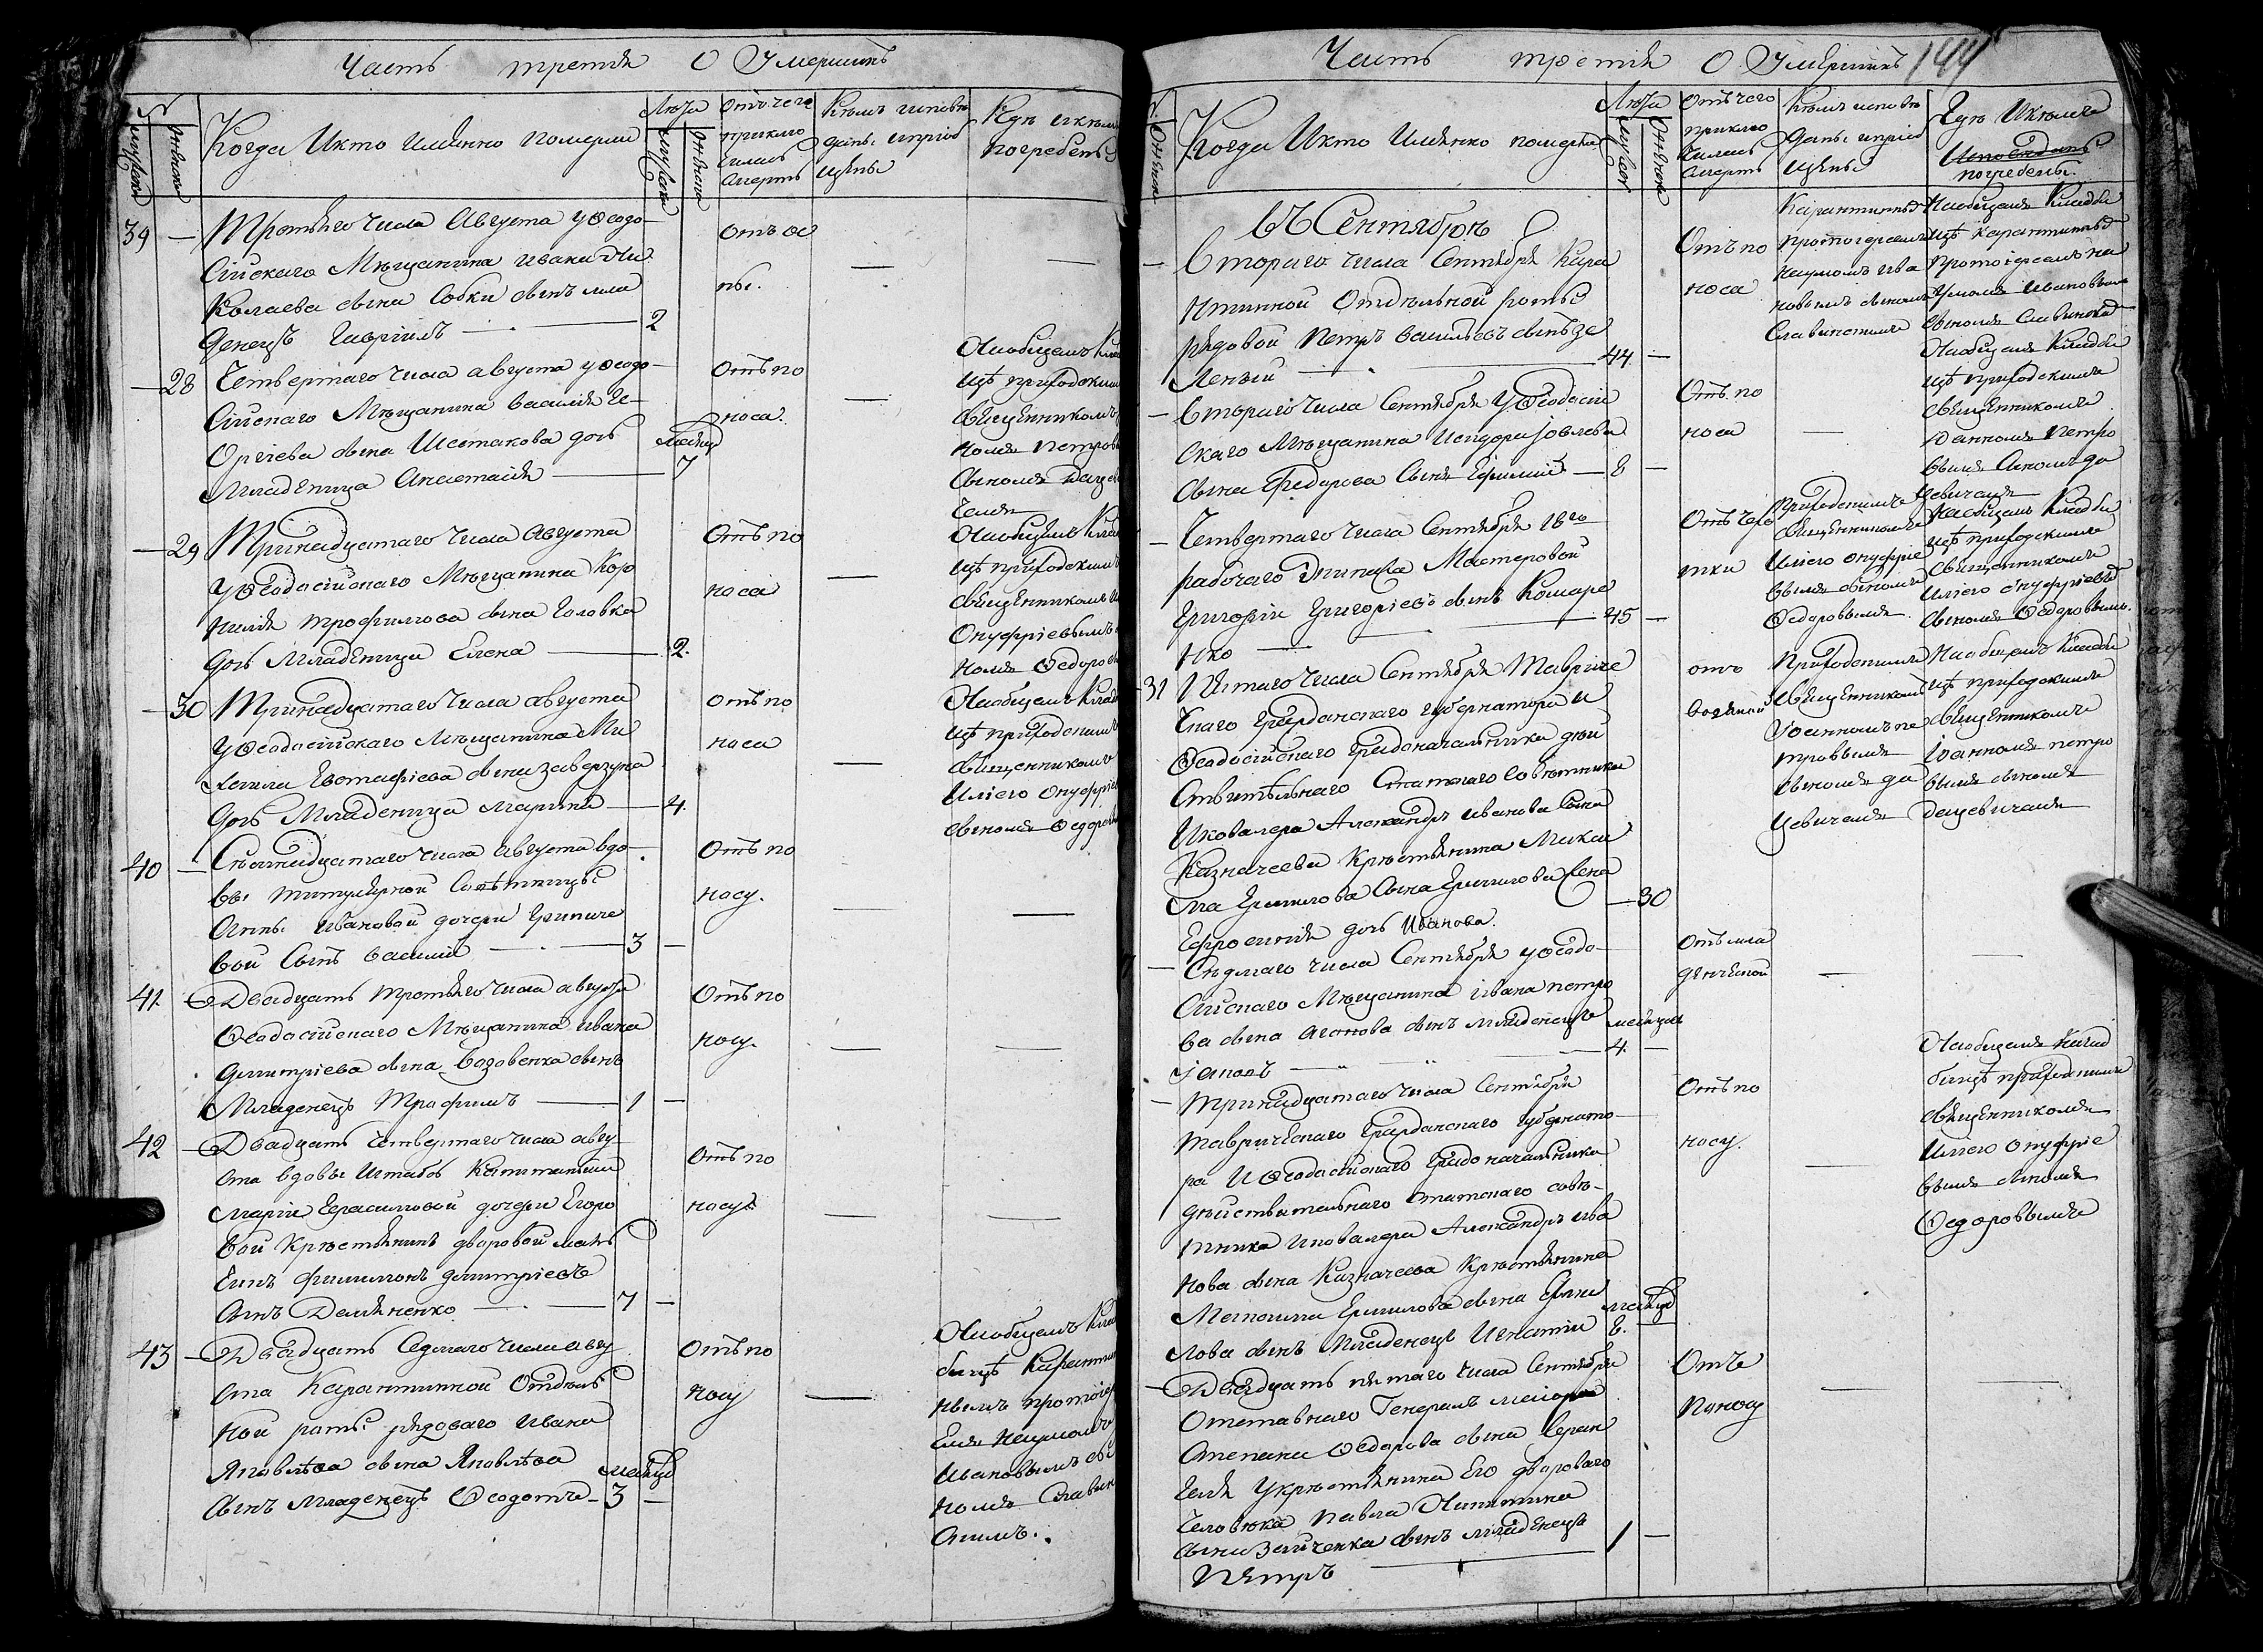 Часть третія О Умершихъ
№
мужеска
женска
Когда Икто имянно померли
Лѣта
мужеска
женска
Отъ чего
приклю
чилась
смерть
Кѣмъ исповѣ
даны и пріоб
щены
Гдѣ и кѣмъ
погребены
39 — Третьяго числа Августа у Ѳеодо
сійскаго Мѣщанина Ивана Ни
колаева сына Собки сынъ мла
денецъ Гавріилъ — 2
Отъ ос
пы.
—28 Четвертаго числа августа у Ѳеодо
сійскаго Мѣщанина Василія Ге
оргіева сына Шестакова дочь
Младеница Анастасія — 7
Отъ по
носа.
На общемъ
щѣ приходскимъ
священникомъ
номъ Петров
сыномъ Даце
чемъ
—29 Тринадцатаго числа Августа
у Ѳеодосійскаго Мѣщанина Кор
нилія Трофимова сына Головка
дочь Младеница Елена — 2.
Отъ по
носа
На общемъ
щѣ приходскимъ
священникомъ
Онуфріевымъ
номъ Ѳедоро
—30 Тринадцатаго числа августа
у Ѳеодосійскаго Мѣщанина Ми
хаила Евстафіева сына Заверзуна
дочь Младеница Марина — 4.
Отъ по
носа
На общемъ
щѣ приходскимъ
священникомъ
Иліею Онуфріе
сыномъ Ѳедоро
40 — Семнадцатаго числа Августа вдо
вы титулярной Совѣтницы
Анны Ивановой дочери Гриниче
вой Сынъ Василій — 3 —
Отъ по
носу.
41 — Двадцать третьяго числа августа
Ѳеодосійскаго Мѣщанина Ивана
Димитріева сына Возовенка сынъ
Младенецъ Трофимъ — 1 —
Отъ по
носу.
42 — Двадцать четвертаго числа авгу
ста вдовы Штабсъ Капитанши
Маріи Герасимовой дочери Егоро
вой Крѣстьянинъ дворовой маль
Отъ по
носу.
Филимонъ Димитріевъ
сынъ Демяненко — 7 —
43 — Двадцать Седмаго числа авгу
ста Карантинной Отдѣль
ной роты рядоваго Ивана
Яковлѣва сына Яковлѣва
сынъ Младенецъ Ѳеодотъ — 3 —
Отъ по
носу
На общемъ
бищѣ Карантин
нымъ протоіер
емъ Наумомъ
Ивановымъ
номъ Славин
скимъ.
Часть третія О Умершихъ 144
№
женска
Когда Икто Имянно померли
Лѣта
мужеска
женска
Отъ чего
приклю
чилась
смерть
Кѣмъ исповѣ
даны и пріоб
щены
Гдѣ Икѣмъ
Исповѣданъ
погребены.
Въ Сентябрѣ
— Втораго числа Сентября Кара
нтинной Отдѣльной роты
рядовой Петръ Васильевъ сынъ Зе
леный — 44 —
Отъ по
носа
Карантиннымъ
протоіереемъ
Наумомъ Ива
новымъ сыномъ
Славинскимъ
На общемъ Кладби
щѣ Карантиннымъ
Протоіереемъ На
умомъ Ивановымъ
сыномъ Славинскимъ
— Втораго числа Сентября У Ѳеодосій
скаго Мѣщанина Исидора Іовлева
сына Федорова Сынъ Ефимій — 8 —
Отъ по
носа
На общемъ Кладби
щѣ приходскимъ
священникомъ
Іоанномъ Петро
вымъ Сыномъ Да
цевичемъ
— Четвертаго числа Сентября 18го
рабочаго экипажа Мастеровой
Григорій Григоріевъ сынъ Комаре
нко — 45 —
Приходскимъ
священникомъ
Иліею Онуфріе
вымъ сыномъ
Ѳедоровымъ
На общемъ Кладби
щѣ приходскимъ
священникомъ
Иліею Онуфріевымъ
сыномъ Ѳедоровымъ.
31 Пятаго числа Сентября Тавриче
скаго Гражданскаго губернатора и
Ѳеодосійскаго Градоначальника дѣй
ствительнаго Статскаго Совѣтника
Икавалера Александра Иванова Сына
Казначеева Крѣстьянина Михаи
ла Ермилова Сына Ермилова Жена
Ефросинія дочь Иванова. — 30
отъ
водяной
Приходскимъ
священникомъ
Іоанномъ Пе
тровымъ
сыномъ Да
цевичемъ
На общемъ Кладби
щѣ приходскимъ
священникомъ
Іоанномъ Петро
вымъ сыномъ
Дацевичемъ
— Седмаго числа Сентября у Ѳеодо
сійскаго Мѣщанина Ивана Петро
ва сына Агонова сынъ младенецъ
Іаковъ — 4. —
Отъ мла
денческой
— Тринадцатаго числа Сентября
Таврическаго Гражданскаго Губернато
ра И Ѳеодосійскаго Градоначальника
дѣйствительнаго Статскаго совѣ
тника Икавалера Александра Ива
нова сына Казначеева Крѣстьянина
Ермилова сына Ерми
лова сынъ Младенецъ Игнатій 8. —
Отъ по
носу.
На общемъ Клад
бищѣ приходскимъ
священникомъ
Иліею Онуфріе
вымъ сыномъ
Ѳедоровымъ
— Двадцать пятаго числа Сентября
Отставнаго Генералъ маіора
Степана Ѳедорова сына
Укрѣстьянина Его двороваго
человѣка Павла Никитина
сына Зайченка сынъ младенецъ
Пѣтръ — 1 —
Отъ
Поносу